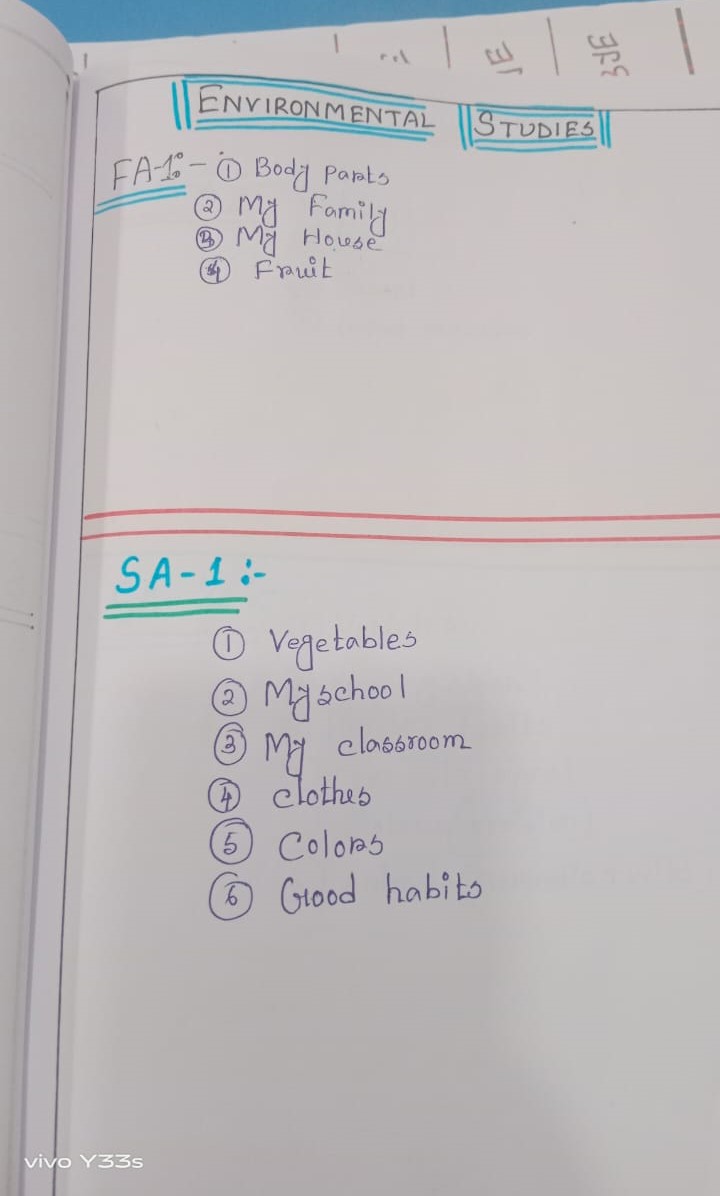 ENVIRONMENTAL STUDIES
FA-1:- ① Body Parts
② My Family
③ My House
④ Fruit
SA-1:-
① Vegetables
② My school
③ My classroom
④ clothes
⑤ Colors
⑥ Good habits
vivo Y33s